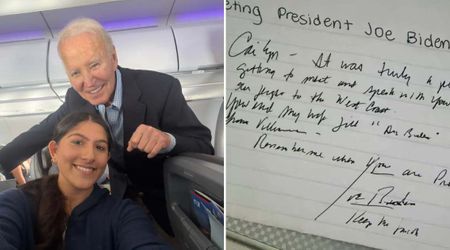 eting President Joe Biden
Caitlyn - It was truly a p
getting to meet and speak with you
to the West Coast.
You and my wife Jill "Dr. Biden"
Remember me when You are Pre
Joe Biden
Keep the faith